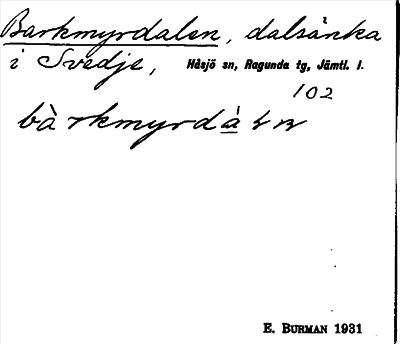 Barkmyrdalen, dalsänka
i Svedje, Håsjö sn, Ragunda tg, Jämtl. l.
102
bàrkmyrdà
E. BURMAN 1931